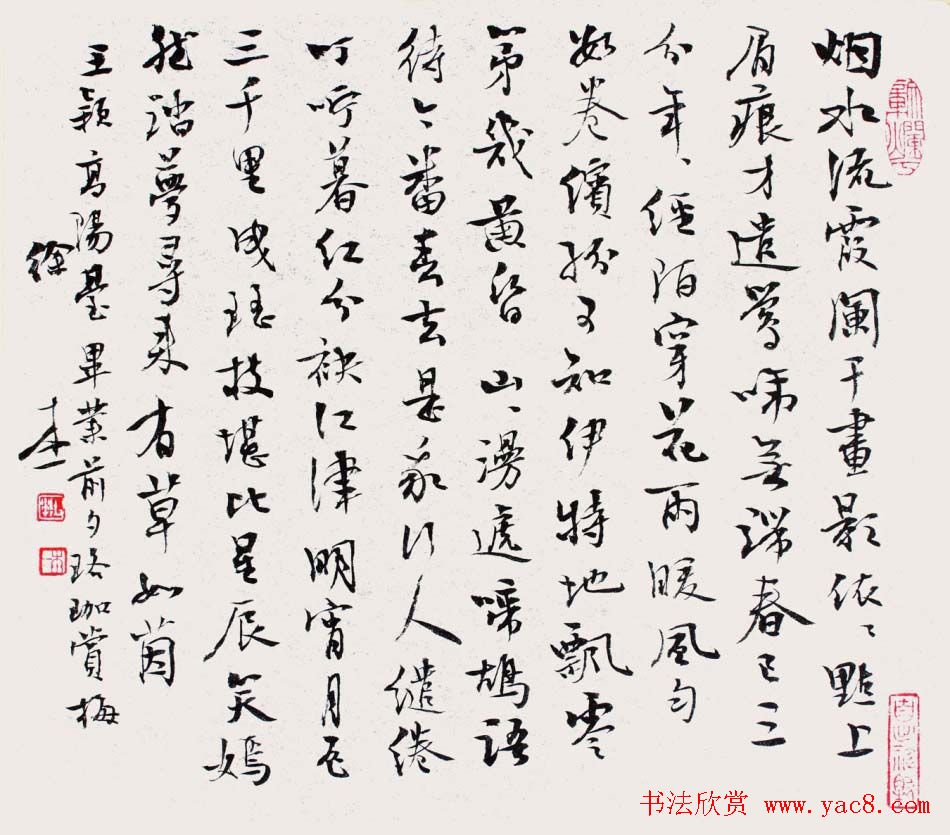 烟水流霞闌干畫影依〻點上
眉痕才遣鶯啼無端春已三
分年〻經陌穿花雨暖風勻
卷繽紛可知伊特地飄零
第幾黃昏山〻漫遞啼鴣語
待今番春去是我行人繾綣
叮嚀暮紅分袂江津明宵月
三千里成瑤技堪比星辰笑嫣
然踏夢尋來有草如茵
王穎高陽臺畢業前夕珞珈賞梅
徐本一
书法欣赏 www.yac8.com